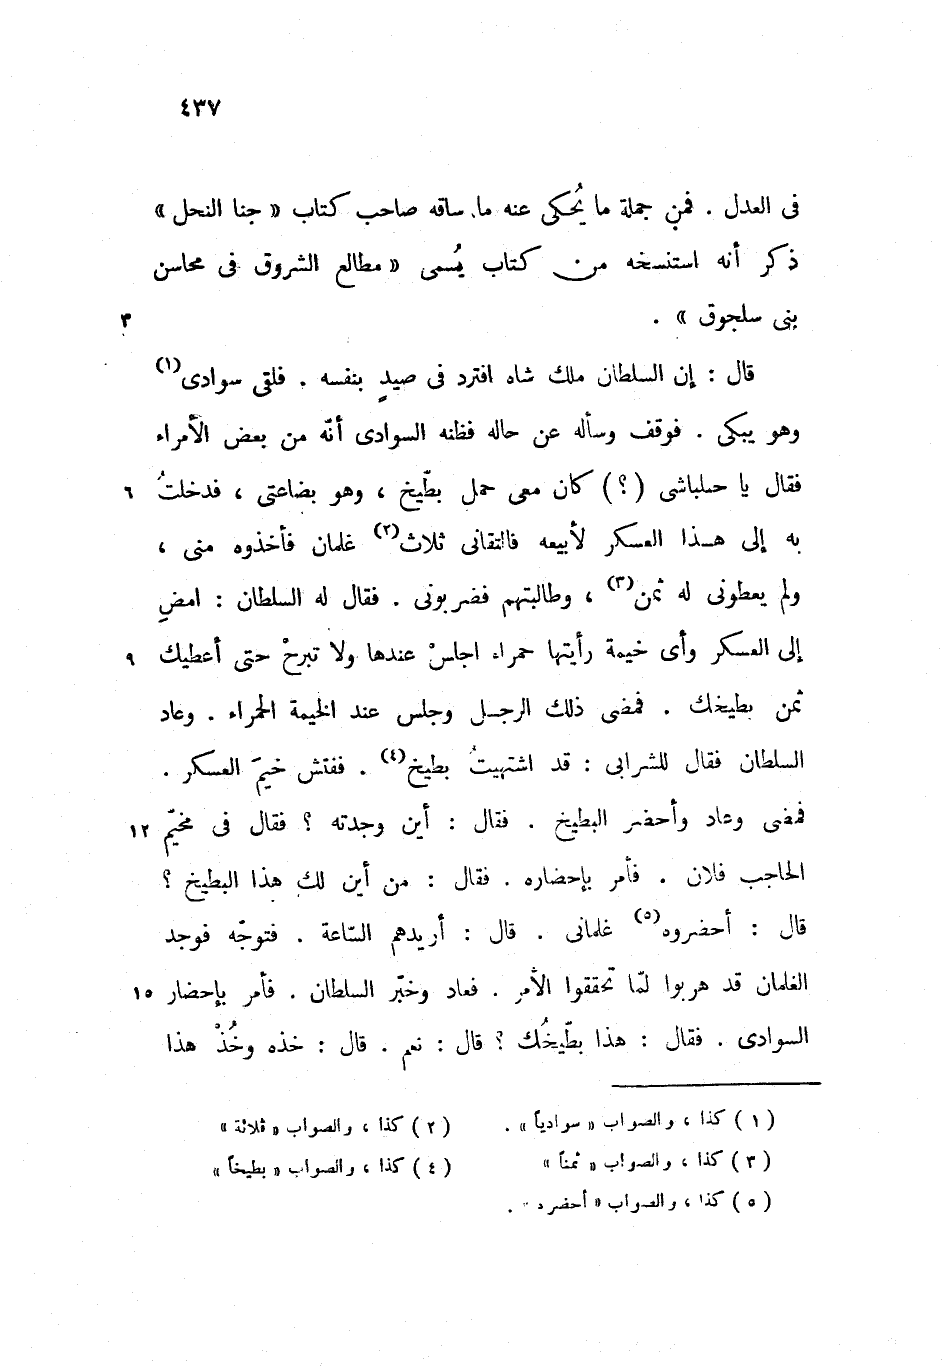 ٤٣٧
فى العدل . فمن جملة ما يُحكى عنه ما ساقه صاحب كتاب « جنا النحل »
ذكر أنه استنسخه من كتاب يُسمى « مطالع الشروق فى محاسن
بنى سلجوق » . ٣
قال : إن السلطان ملك شاه افترد فى صيدٍ بنفسه . فلقى سوادى(١)
وهو يبكى . فوقف وسأله عن حاله فظنه السوادى أنّه من بعض الأمراء
فقال يا حىلباشى (؟) كان معى حمل بطّيخ ، وهو بضاعتى ، فدخلتُ ٦
به إلى هـذا العسكر لأبيعه فالتقانى ثلاث(٢) غلمان فأخذوه منى ،
ولم يعطونى له ثمن(٣) ، وطالبتهم فضربونى . فقال له السلطان : امضِ
إلى العسكر وأى خيمة رأيتها حمراء اجلسْ عندها ولا تبرحْ حتى أعطيك ٩
ثمن بطيخك . فمضى ذلك الرجـل وجلس عند الخيمة الحمراء . وعاد
السلطان فقال للشرابى : قد اشتهيتُ بطيخ(٤) . ففتش خيمَ العسكر .
فمضى وعاد وأحضر البطيخ . فقال : أين وجدته ؟ فقال فى مخيّم ١٢
الحاجب فلان . فأمر بإحضاره . فقال : من أين لك هذا البطيخ ؟
قال : أحضروه(٥) غلمانى . قال : أريدهم السّاعة . فتوجّه فوجد
الغلمان قد هربوا لمّا تحققوا الأمر . فعاد وخبّر السلطان . فأمر بإحضار ١٥
السوادى . فقال : هذا بطّيخُك ؟ قال : نعم . قال : خذه وخُذْ هذا
(١) كذا ، والصواب « سوادياً » . (٢) كذا ، والصواب « ثلاثة »
(٣) كذا ، والصواب « ثمناً » (٤) كذا ، والصواب « بطيخاً »
(٥) كذا ، والصواب « أحضره » .